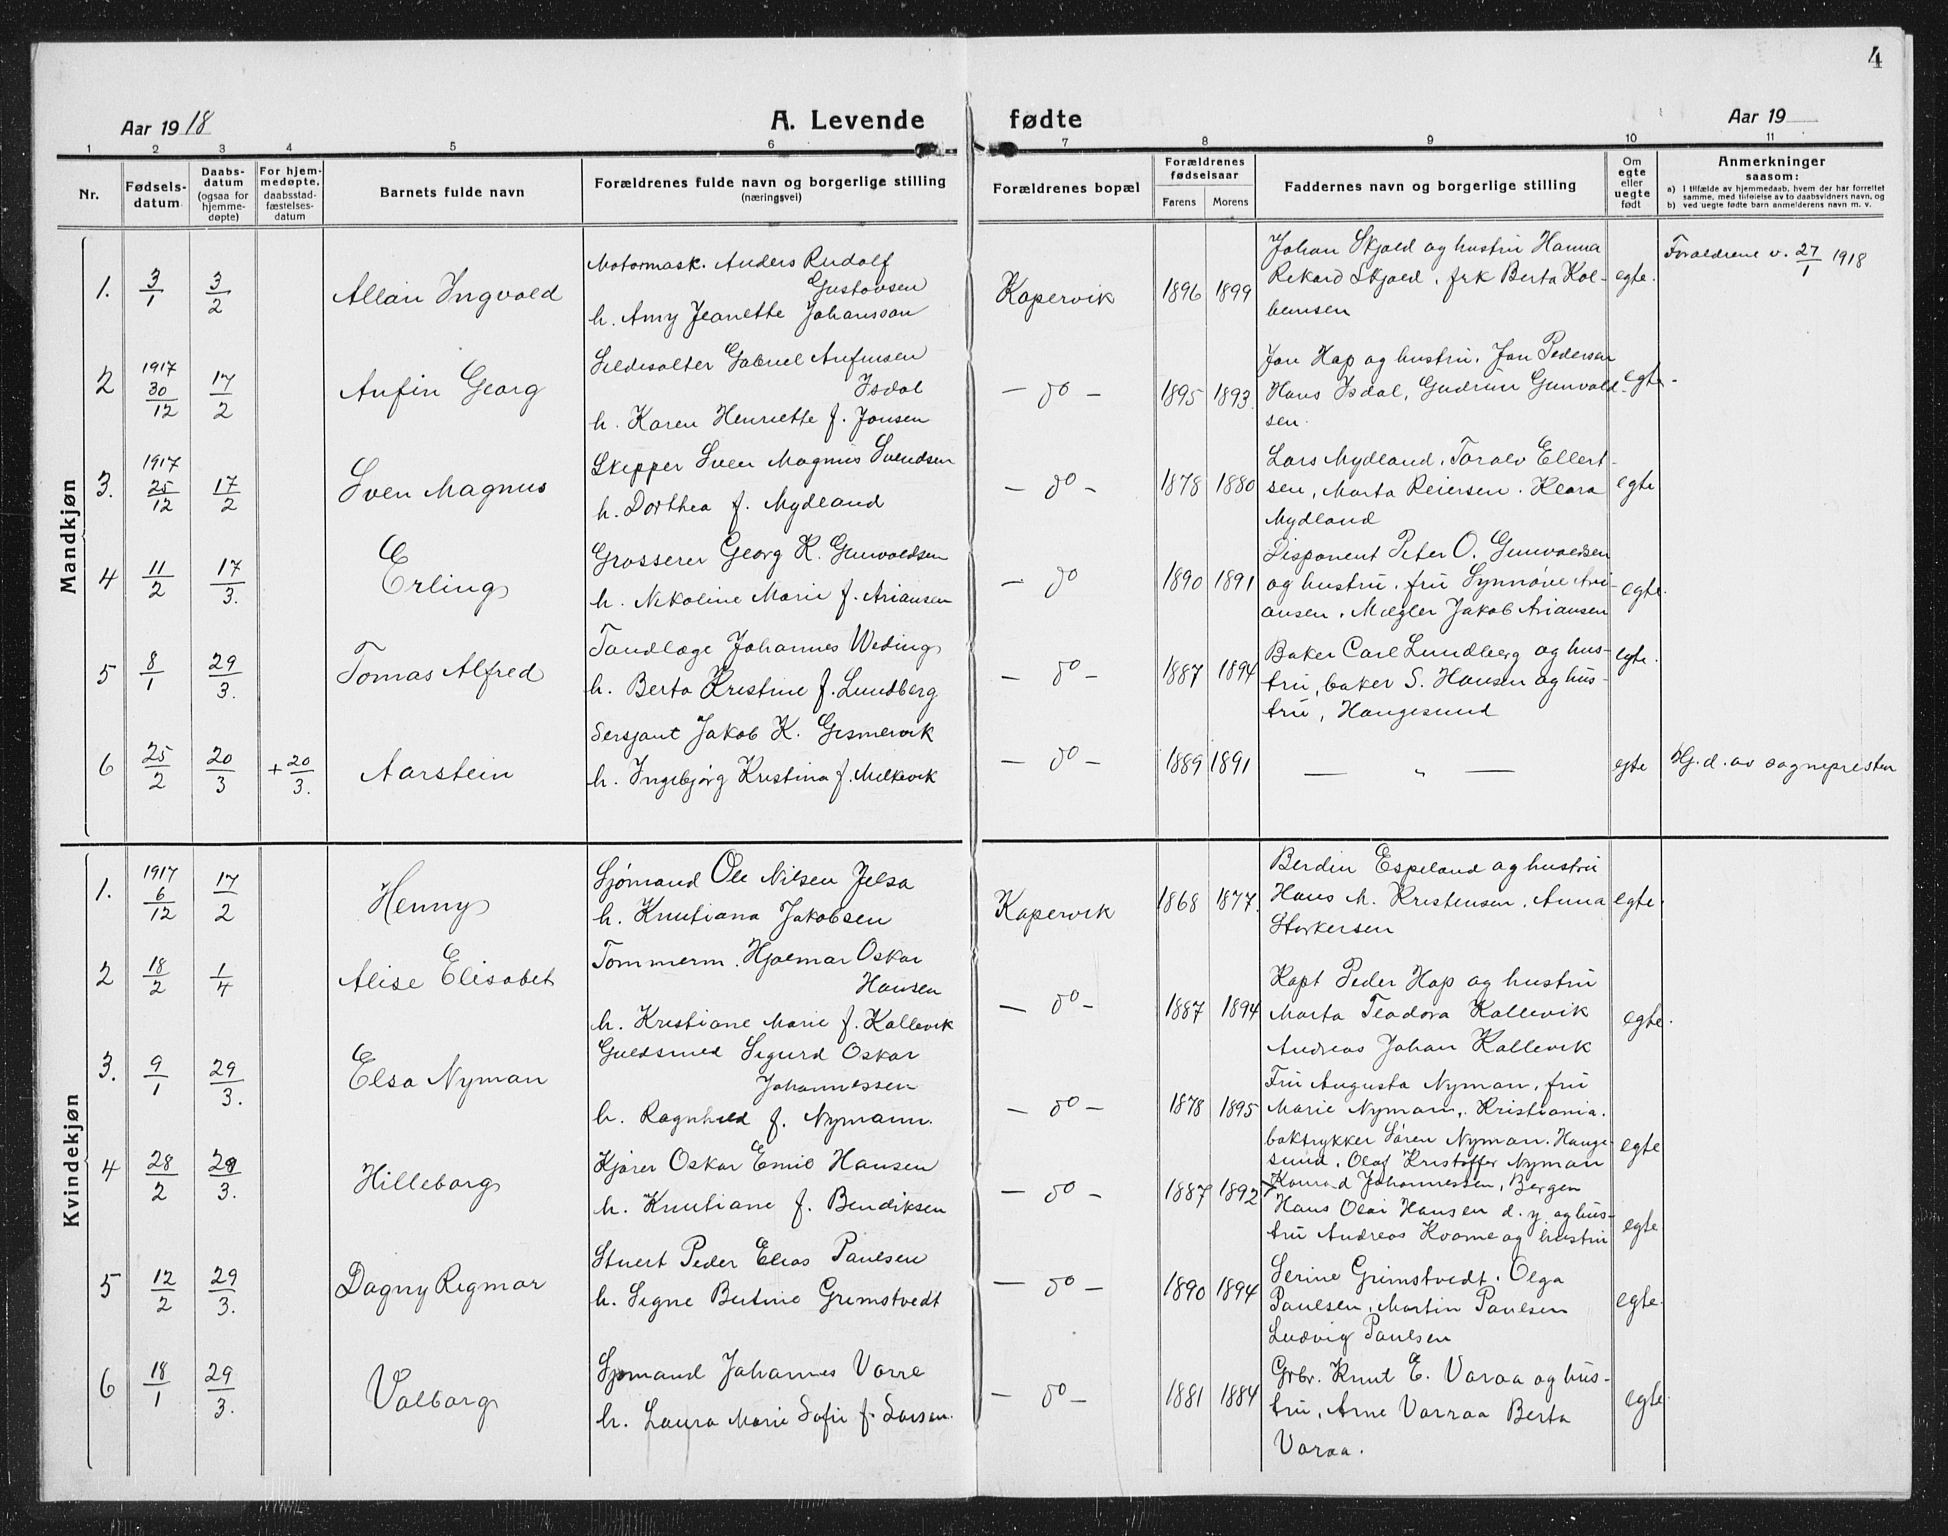 4
Aar 1918
A. Levende fødte
Aar 19
1 2 3 4 5 6 7 8 9 10 11
Nr.
Fødsels-
datum
Daabs-
datum
(ogsaa for
hjemme-
døpte)
For hjem-
medøpte,
daabsstad-
fæstelses-
datum
Barnets fulde navn
Forældrenes fulde navn og borgerlige stilling
(næringsvei)
Forældrenes bopæl
Forældrenes
fødselsaar
Farens Morens
Faddernes navn og borgerlige stilling
Om
egte
eller
uegte
født
Anmerkninger
saasom:
a) I tilfælde av hjemmedaab, hvem der har forrettet
samme, med tilføielse av to daabsvidners navn, og
b) ved uegte fødte barn anmelderens navn m. v.
Mandkjøn
1. 3/1 3/2 Allan Ingvald
Motormask. Anders Rudolf
Gustavsen
h. Amy Jeanette Johansson
Kopervik 1896 1899
Johan Skjold og hustru Hanna
Rekard Skjold, frk Berta Kol-
bensen
egte.
Forældrene v. 27/1 1918
2 1917 30/12 17/2 Anfin Georg
Sildesalter Gabriel Anfinsen
Isdal
h. Karen Henriette f. Jonsen
— do — 1895 1893
Jon Hap og hustru, Jon Pedersen
Hans Isdal, Gudrun Gunvald-
sen.
egte.
3. 1917 25/12 17/2 Sven Magnus
Skipper Sven Magnus Svendsen
h. Dorthea f. Mydland
— do — 1878 1880
Lars Mydland, Toralv Ellert-
sen, Marta Reiersen. Klara
Mydland
egte
4 11/2 17/3. Erling
Grosserer Georg K. Gunvaldsen
h. Nikoline Marie f. Ariansen
— do 1890 1891
Disponent Peter O. Gunvaldsen
og hustru, fru Synnøve Ari-
ansen, Mægler Jakob Ariansen
egte.
5 8/1 29/3. Tomas Alfred
Tandlæge Johannes Weding
h. Berta Kristine f. Lundberg
— do — 1887 1894
Baker Carl Lundberg og hus-
tru, baker S. Hansen og hus-
tru, Haugesund
egte.
6 25/2 20/3 +20/3. Aarstein
Sersjant Jakob K. Gismervik
h. Ingebjørg Kristina f. Melkevik
— do — 1889 1891
— " —
egte
Hj. d. av sognepresten
Kvindekjøn
1. 1917 6/12 17/2 Henny
Sjømand Ole Nilsen Jelsa
h. Knutiana Jakobsen
Kopervik 1868 1877.
Berdin Espeland og hustru
Hans M. Kristensen, Anna
Storkersen
egte.
2 18/2 1/4 Alise Elisabet
Tømmerm. Hjalmar Oskar
Hansen
h. Kristiane Marie f. Kallevik
— do — 1887 1894
Kapt Peder Hap og hustru
Marta Teodora Kallevik
Andreas Johan Kallevik
egte.
3. 9/1 29/3. Elsa Nyman
Guldsmed Sigurd Oskar
Johannessen
h. Ragnhild f. Nymann.
— do — 1878 1895
Fru Augusta Nyman, fru
Marie Nymann, Kristiania.
boktrykker Søren Nyman. Hauge-
sund, Olaf Kristoffer Nyman
Konrad Johannessen, Bergen
egte
4 28/2 29/3. Hilleborg
Kjører Oskar Emil Hansen
h. Knutiane f. Bendiksen
— do — 1887 1892
Hans Olai Hansen d. y. og hus-
tru Andreas Kvame og hustru
egte
5 12/2 29/3. Dagny Rigmor
Stuert Peder Elias Paulsen
h. Signe Bertine Grimstvedt
— do — 1890 1894
Serine Grimstvedt. Olga
Paulsen, Martin Paulsen
Ludvig Paulsen
egte.
6 18/1 29/3. Valborg
Sjømand Johannes Varre
h. Laura Marie Sofie f. Larsen.
— do — 1881 1884
Grbr. Knut E. Varaa og hus-
tru, Arne Varraa Berta
Varaa.
egte